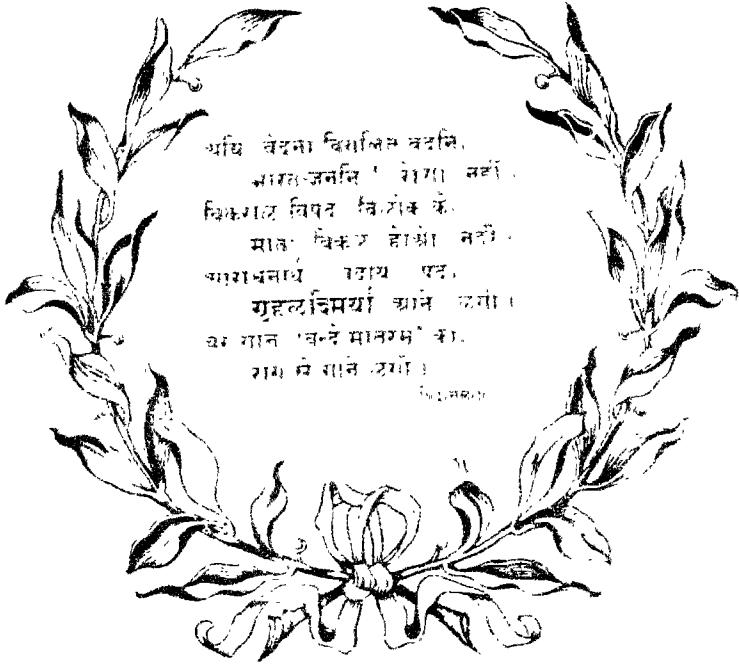 अयि वेदना विगलित वदनि,
भारत-जननि ! रोगा नहीं ।
विकराल विपद विलोक के,
माता विकल होओ नहीं ।
आराधनार्थ उठाय पद,
गृहलक्ष्मियाँ आने लगी ।
वर गान 'वन्दे मातरम' का,
राग से गाने लगी ।